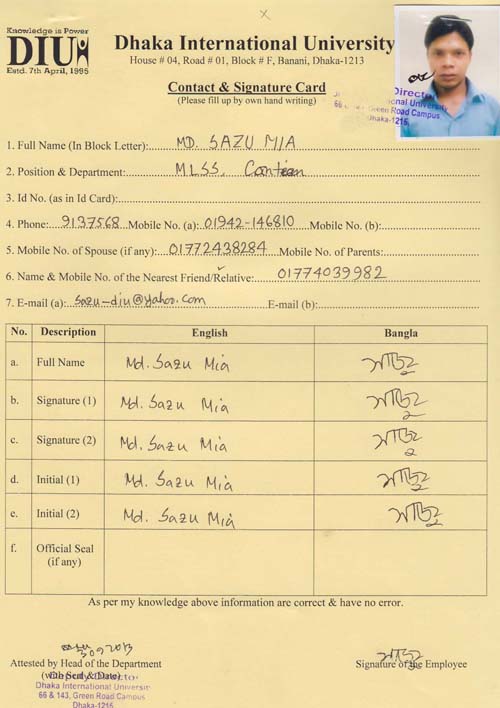 Knowledge is Power
DIU
Estd. 7th April, 1995
Dhaka International University
House # 04, Road # 01, Block # F, Banani, Dhaka-1213
Contact & Signature Card
(Please fill up by own hand writing)
Director
International University
66 Green Road Campus
Dhaka-1215
1. Full Name (In Block Letter): MD. SAZU MIA
2. Position & Department: MLSS, Canteen
3. Id No. (as in Id Card):
4. Phone: 9137568 Mobile No. (a): 01942-146810 Mobile No. (b):
5. Mobile No. of Spouse (if any): 01772438284 Mobile No. of Parents:
6. Name & Mobile No. of the Nearest Friend/Relative: 01774039982
7. E-mail (a): sazu-diu@yahoo.com E-mail (b):
No. Description English Bangla
a. Full Name Md. Sazu Mia সাজু
b. Signature (1) Md. Sazu Mia সাজু
c. Signature (2) Md. Sazu Mia সাজু
d. Initial (1) Md. Sazu Mia সাজু
e. Initial (2) Md. Sazu Mia সাজু
f. Official Seal
(if any)
As per my knowledge above information are correct & have no error.
সাজু
Attested by Head of the Department Signature of the Employee
(with Seal & Date)
Deputy Director
Dhaka International University
66 & 143, Green Road Campus
Dhaka-1215